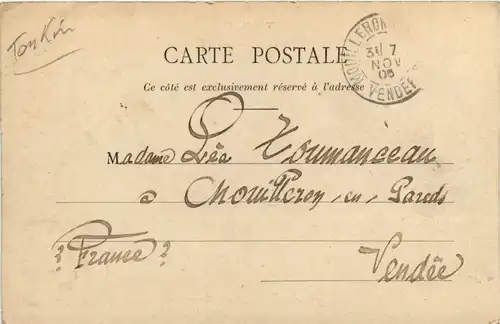 Tonkin
CARTE POSTALE
Ce côté est exclusivement réservé à l'adresse
MOUILLERON
31 7
NOV
05
VENDÉE
Madame Léa Toumanceau
à Mouilleron, en, Pareds
France
Vendée